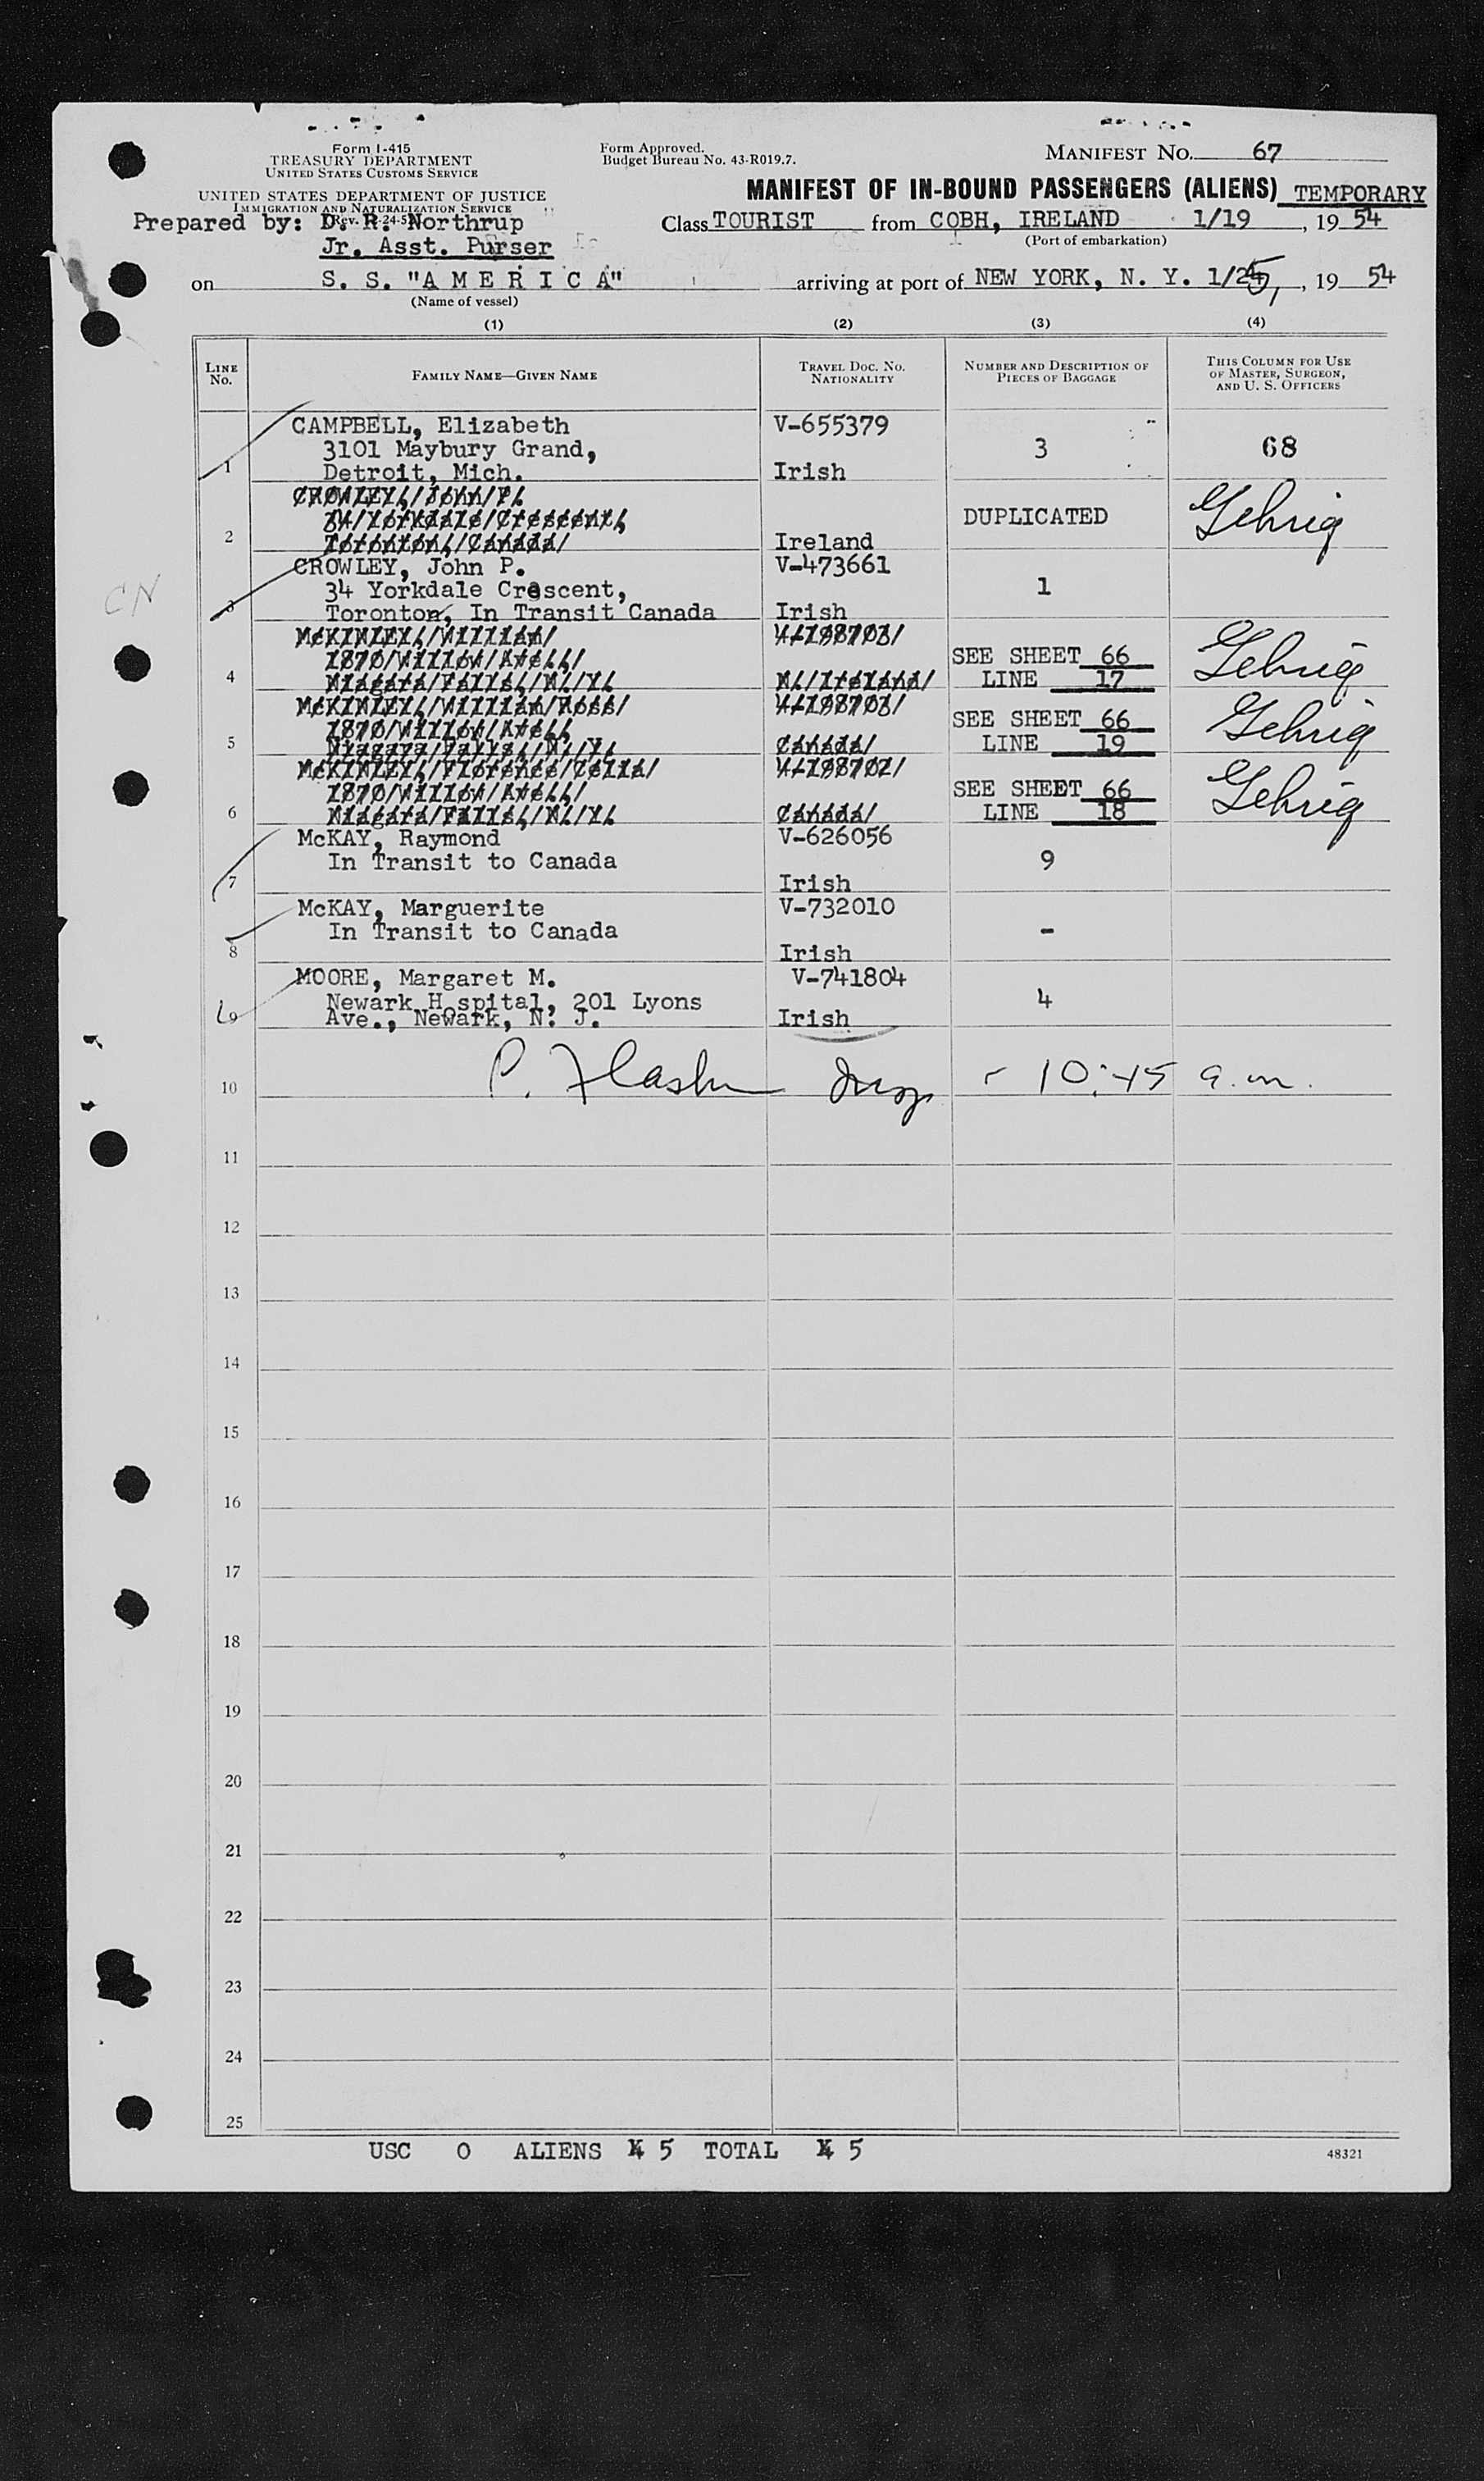 Form I-415
TREASURY DEPARTMENT
UNITED STATES CUSTOMS SERVICE
Form Approved.
Budget Bureau No. 43-R019.7.
MANIFEST No. 67
UNITED STATES DEPARTMENT OF JUSTICE
IMMIGRATION AND NATURALIZATION SERVICE
MANIFEST OF IN-BOUND PASSENGERS (ALIENS) TEMPORARY
Prepared by: D. R. Northrup
Jr. Asst. Purser
Class TOURIST from COBH, IRELAND 1/19, 19 54
(Port of embarkation)
on S. S. "A M E R I C A" arriving at port of NEW YORK, N. Y. 1/25, 19 54
(Name of vessel)
(1) (2) (3) (4)
LINE No. FAMILY NAME—GIVEN NAME TRAVEL DOC. NO. NATIONALITY NUMBER AND DESCRIPTION OF PIECES OF BAGGAGE THIS COLUMN FOR USE OF MASTER, SURGEON, AND U. S. OFFICERS
CAMPBELL, Elizabeth V-655379
3101 Maybury Grand, 3 68
1 Detroit, Mich. Irish
CROWLEY, John P.
34 Yorkdale Crescent, DUPLICATED Gehrig
2 Toronton, Canada Ireland
CROWLEY, John P. V-473661
CN 34 Yorkdale Crescent, 1
3 Toronton, In Transit Canada Irish
McKINLEY, William
1870 Willow Ave., SEE SHEET 66 Gehrig
4 Niagara Falls, N. Y. N. Ireland LINE 17
McKINLEY, William Ross
1870 Willow Ave. SEE SHEET 66 Gehrig
5 Niagara Falls, N. Y. Canada LINE 19
McKINLEY, Florence Celia
1870 Willow Ave., SEE SHEET 66 Gehrig
6 Niagara Falls, N. Y. Canada LINE 18
McKAY, Raymond V-626056
In Transit to Canada 9
7 Irish
McKAY, Marguerite V-732010
In Transit to Canada -
8 Irish
MOORE, Margaret M. V-741804
Newark Hospital, 201 Lyons 4
9 Ave., Newark, N. J. Irish
10 P. - 10:45 a.m.
11
12
13
14
15
16
17
18
19
20
21
22
23
24
25
USC 0 ALIENS 4 5 TOTAL 4 5
48321